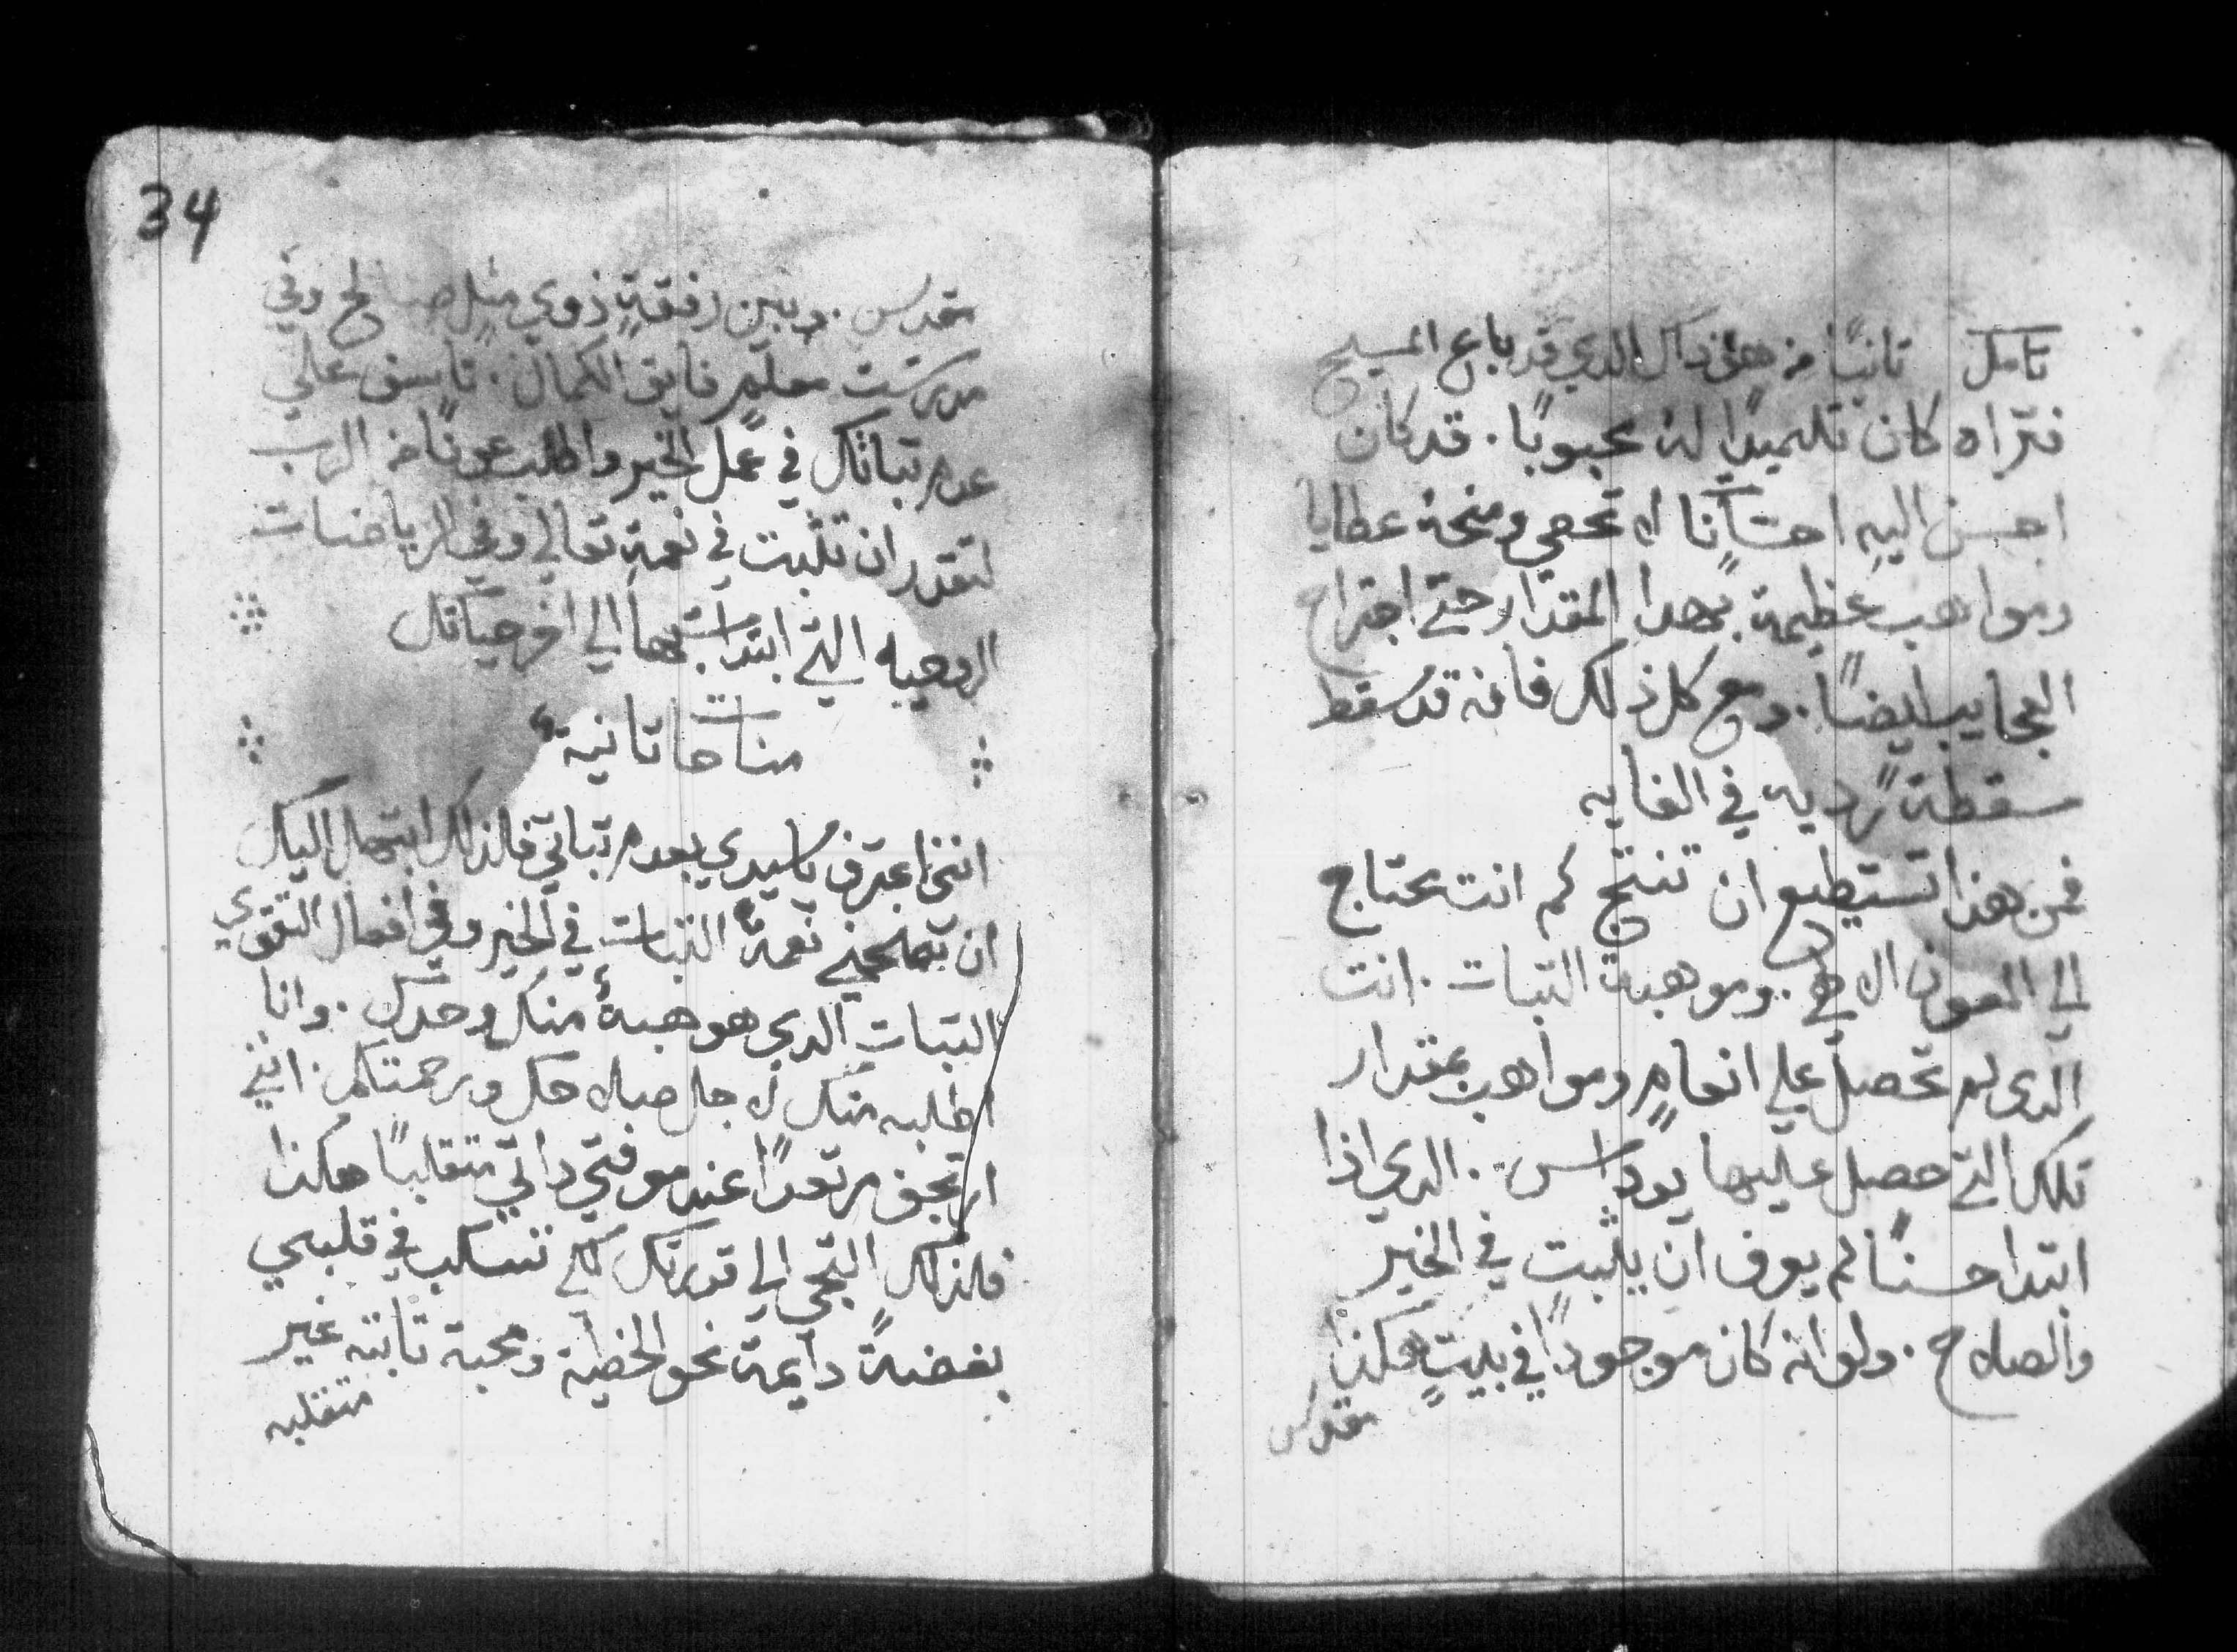 تامل ثانيًا من هو ذاك الدي قد باع المسيح
فتراه كان تلميدًا له محبوبًا. قد كان
احسن اليه احسانًا لا تحصي ومنحه عطايا
ومواهب عظيمة بهدا المقدار حتي اجتراح
العجايب ايضًا. ومع كل ذلك فانه قد سقط
سقطةً رديه في الغايه
فمن هذا تستطيع ان تنتج كم انت محتاج
الي العون الالاهي. وموهبة التبات. انت
الدي لم تحصل علي انعامٍ ومواهب بمقدار
تلك التي حصل عليها يوداس. الدي اذا
ابتدا حسنًا لم يعرف ان يثبت في الخير
والصلاح. ولو انه كان موجودًا في بيتٍ هكذا
مقدس
34
مقدس. وبين رفقةٍ ذوي مثلٍ صالح وفي
مدرست معلمٍ فايق الكمال. تاسف علي
عدم تباتك في عمل الخير واطلب عونًا من الرب
لتقدر ان تثبت في نعمةِ تعالي وفي الرياضات
الروحيه التي ابتدات بها الي اخر حياتك
مناجاة تانية
انني اعترف ياسيدي بعدم تباتي فلذلك ابتهل اليك
ان تمنحني نعمة التبات في الخير وفي افعال التقوي
التبات الدي هو هبةٌ منك وحدك. وانا
اطلبه منك لاجل صلاحك ورحمتك. انني
ارتجف مرتعدًا عند معرفتي داتي متقلبًا هكذا
فلذلك التجي الي قدرتك لكي تسكب في قلبي
بغضةً دايمة نحو الخطية ومحبة تابته غير
متقلبه